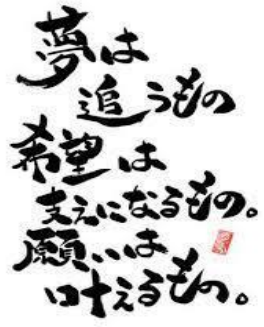 夢は
追うもの
希望は
支えになるもの。
願いは
叶えるもの。